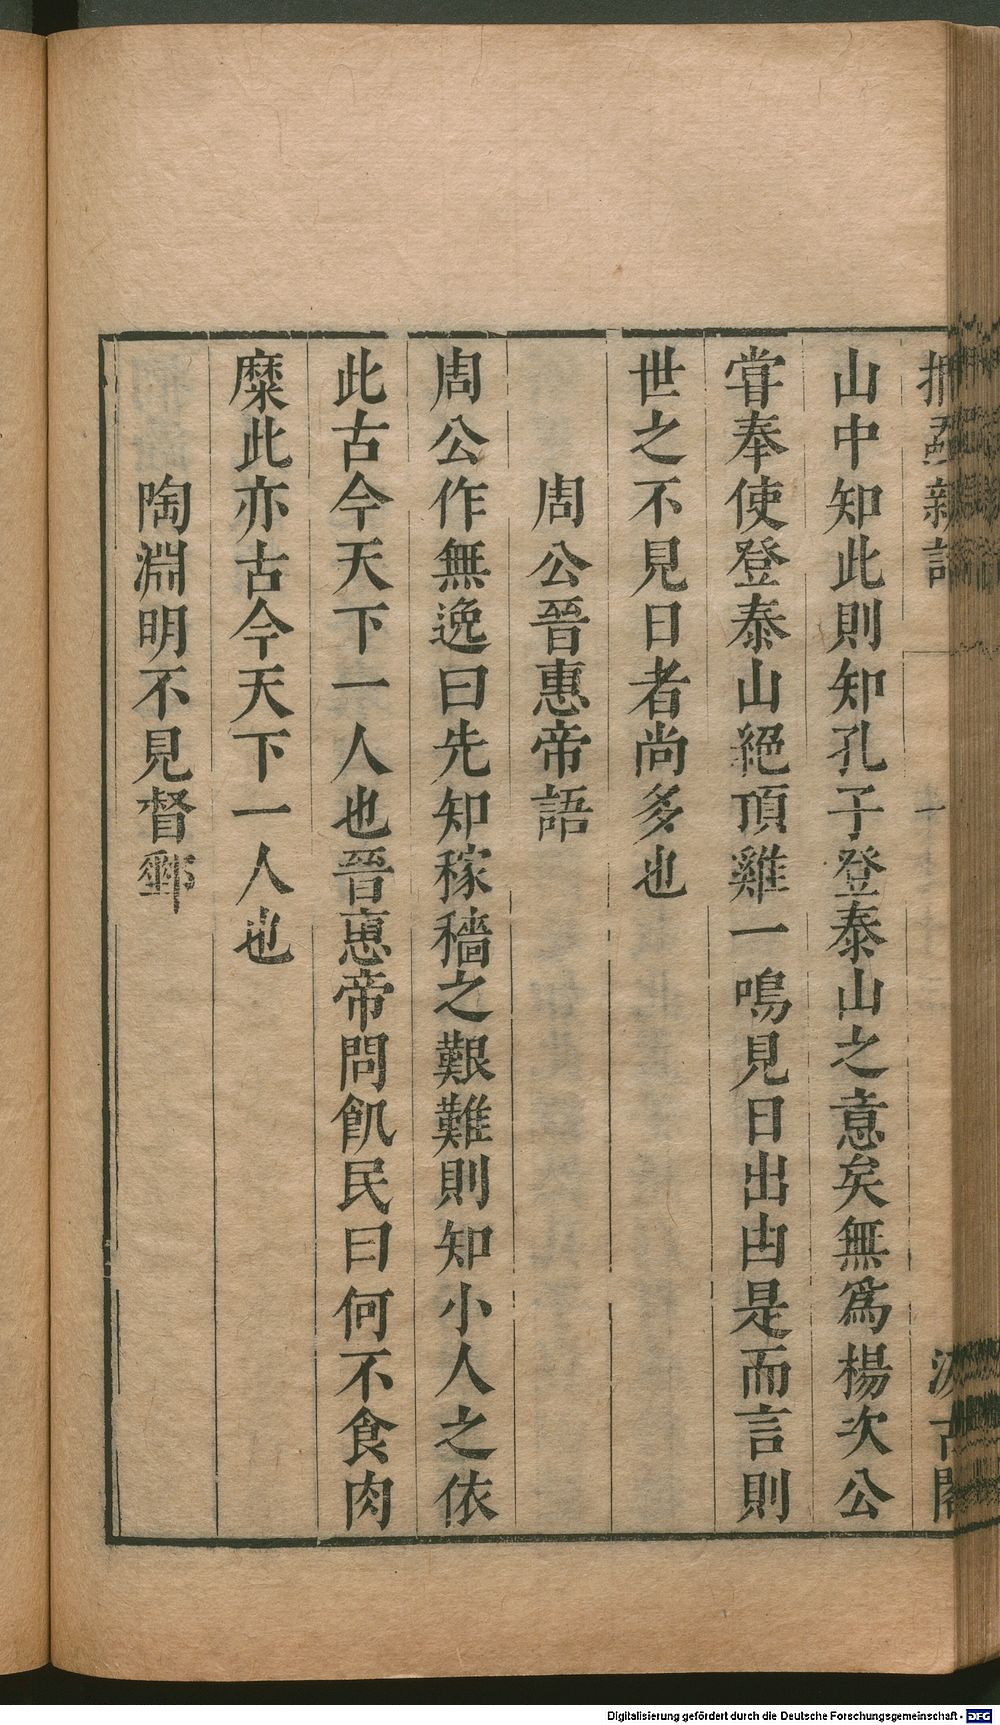 捫蝨新話
山中知此則知孔子登泰山之意矣無爲楊次公
甞奉使登泰山絕頂雞一鳴見日出由是而言則
世之不見日者尚多也
周公晉惠帝語
周公作無逸曰先知稼穡之艱難則知小人之依
此古今天下一人也晉惠帝問飢民曰何不食肉
糜此亦古今天下一人也
陶淵明不見督郵
汲古閣
Digitalisierung gefördert durch die Deutsche Forschungsgemeinschaft - DFG